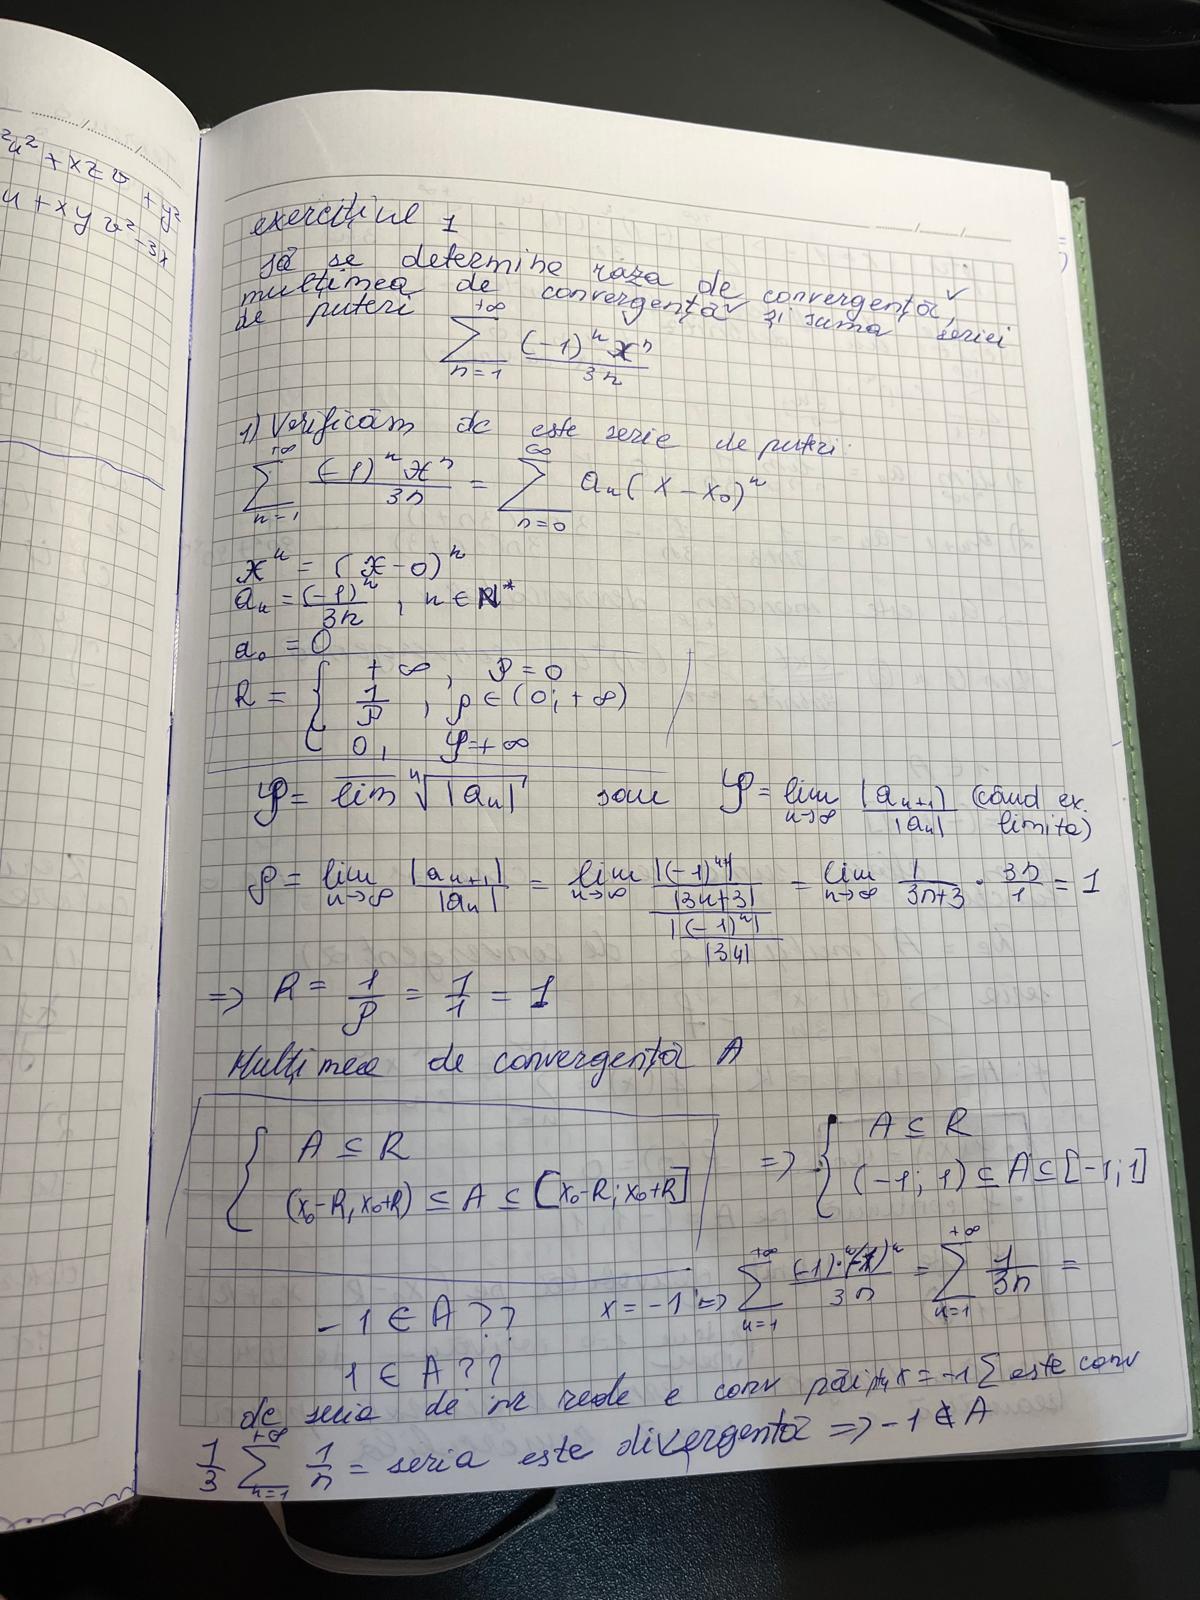 ²u² + xzv + y²
u + xyv² - 3x
exercițiul 1
să se determine raza de convergență,
mulțimea de convergență și suma seriei
de puteri
+∞ ∑ n=1 (-1)ⁿ xⁿ / 3n
1) Verificăm dc este serie de puteri:
+∞ ∑ n=1 (-1)ⁿ xⁿ / 3n = ∞ ∑ n=0 aₙ (x - x₀)ⁿ
xⁿ = (x-0)ⁿ
aₙ = (-1)ⁿ / 3n , n ∈ N*
a₀ = 0
R = { +∞, ρ = 0
1/ρ , ρ ∈ (0; +∞)
0, ρ = +∞
ρ = lim ⁿ√|aₙ| sau ρ = lim n→∞ |aₙ₊₁| / |aₙ| (când ex. limita)
ρ = lim n→∞ |aₙ₊₁| / |aₙ| = lim n→∞ |(-1)ⁿ⁺¹| / |3n+3| / |(-1)ⁿ| / |3n| = lim n→∞ 1 / 3n+3 · 3n / 1 = 1
=> R = 1/ρ = 1/1 = 1
Mulțimea de convergență A
{ A ⊆ R
(x₀-R, x₀+R) ⊆ A ⊆ [x₀-R; x₀+R]
=> { A ⊆ R
(-1; 1) ⊆ A ⊆ [-1; 1]
-1 ∈ A ??
x = -1 => +∞ ∑ n=1 (-1)ⁿ·(-1)ⁿ / 3n = +∞ ∑ n=1 1 / 3n =
1 ∈ A ??
dc seria de nr reale e conv păi ptr x = -1 ∑ este conv
1/3 +∞ ∑ n=1 1/n = seria este divergentă => -1 ∉ A